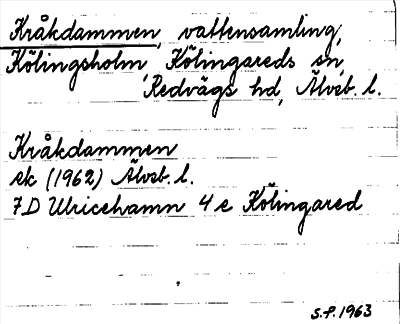 Kråkdammen, vattensamling,
Kölingsholm, Kölingareds sn,
Redvägs hd, Älvsb. l.
Kråkdammen
ek (1962) Älvsb. l.
7D Ulricehamn 4e Kölingared
S.F. 1963